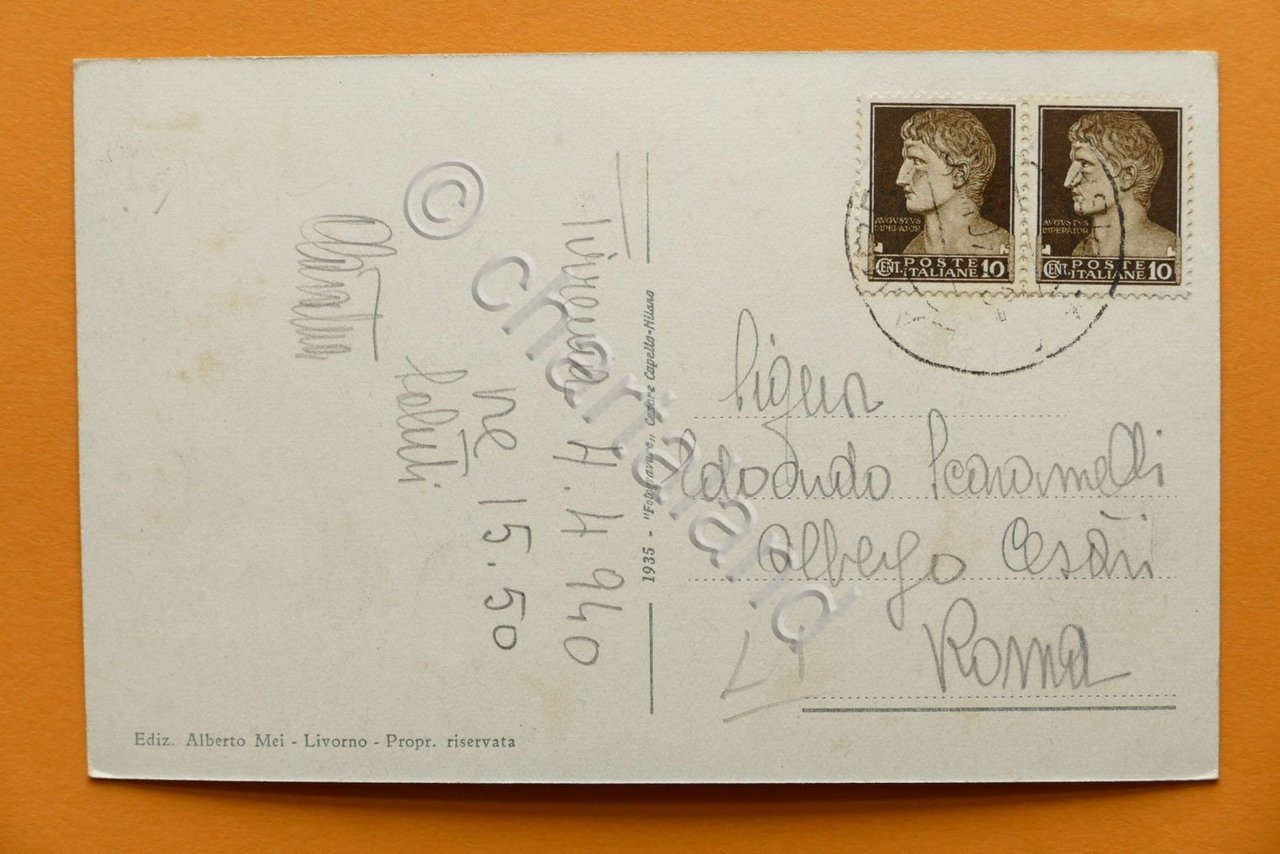 AVGVSTVS
IMPERATOR
CENT. POSTE
ITALIANE 10
AVGVSTVS
IMPERATOR
CENT. POSTE
ITALIANE 10
4.4 940
ne 15.50
Saluti
1935 - "Fotogravure„ Cesare Capello-Milano
Signor
Edoardo Scaramelli
Albergo Cesàri
Roma
Ediz. Alberto Mei - Livorno - Propr. riservata
© chartaland